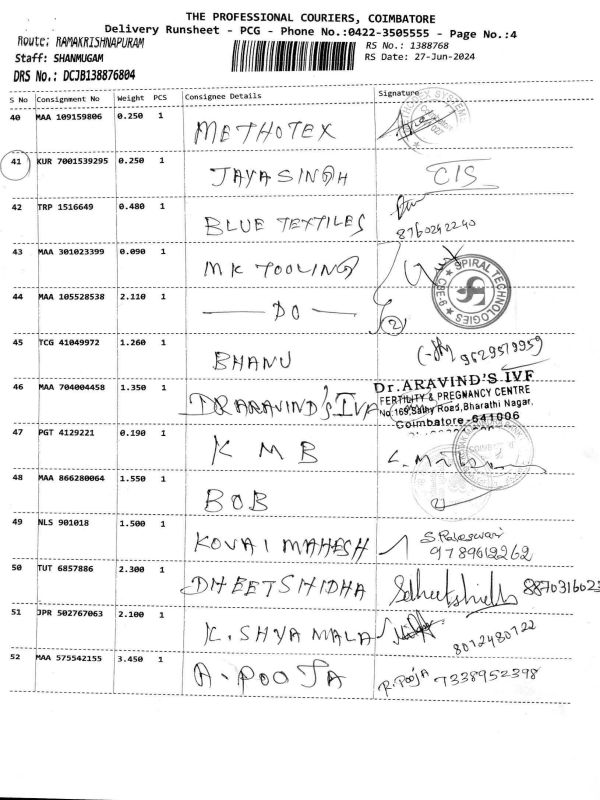 THE PROFESSIONAL COURIERS, COIMBATORE
Delivery Runsheet - PCG - Phone No.:0422-3505555 - Page No.:4
Route: RAMAKRISHNAPURAM
RS No.: 1388768
Staff: SHANMUGAM
RS Date: 27-Jun-2024
DRS No.: DCJB138876804
S No Consignment No Weight PCS Consignee Details Signature
40 MAA 109159806 0.250 1 METHOTEX
41 KUR 7001539295 0.250 1 JAYASINGH CIS
42 TRP 1516649 0.480 1 BLUE TEXTILES
8760242240
43 MAA 301023399 0.090 1 MK TOOLING
SPIRAL TECHNOLOGIES CBE-9
44 MAA 105528538 2.110 1 DO 2
45 TCG 41049972 1.260 1 BHANU 9629579959
46 MAA 704004458 1.350 1 DR ARAVIND'S IVF
Dr.ARAVIND'S IVF
FERTILITY & PREGNANCY CENTRE
No.169, Road, Bharathi Nagar,
Coimbatore-641006
47 PGT 4129221 0.190 1 K M B
48 MAA 866280064 1.550 1 BOB
49 NLS 901018 1.500 1 KOVAI MAHESH
9789612262
50 TUT 6857886 2.300 1 DHEETSHIDHA 887031602
51 JPR 502767063 2.100 1 K. SHYAMALA
8012480122
52 MAA 575542155 3.450 1 A. POOJA R. Pooja 7338952398